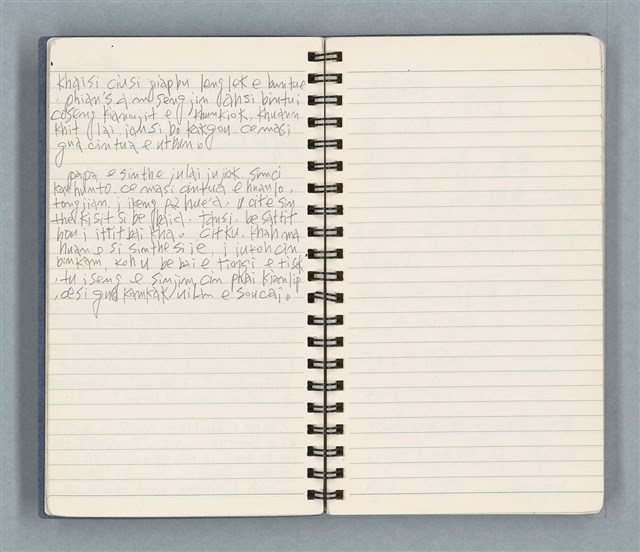 khaisi ciusi piaphu lenglek e buntue
, phian's a m sengjin ahsi bintui
coseng kamnjit e khunkiok, khuann
khit lai iansi bo kakgou. cemasi
gua cintua e utbun o
papa e sinthe julai ju iok, simci
kau hunto. cemasi cintua e huanlo,
tongjian, i iseng ez huecl, u cite sin
the kisit si be baicl, tausi, be sattit
hou i ittit bai kha. citku, khah ma
huan e si sinthe sije, i jukoh can
binkam, koh u be bai e tiongi e tisek
, tu iseng e simjim, cin phai kianlip
, cesi gua kamkak ui lan e soucai.